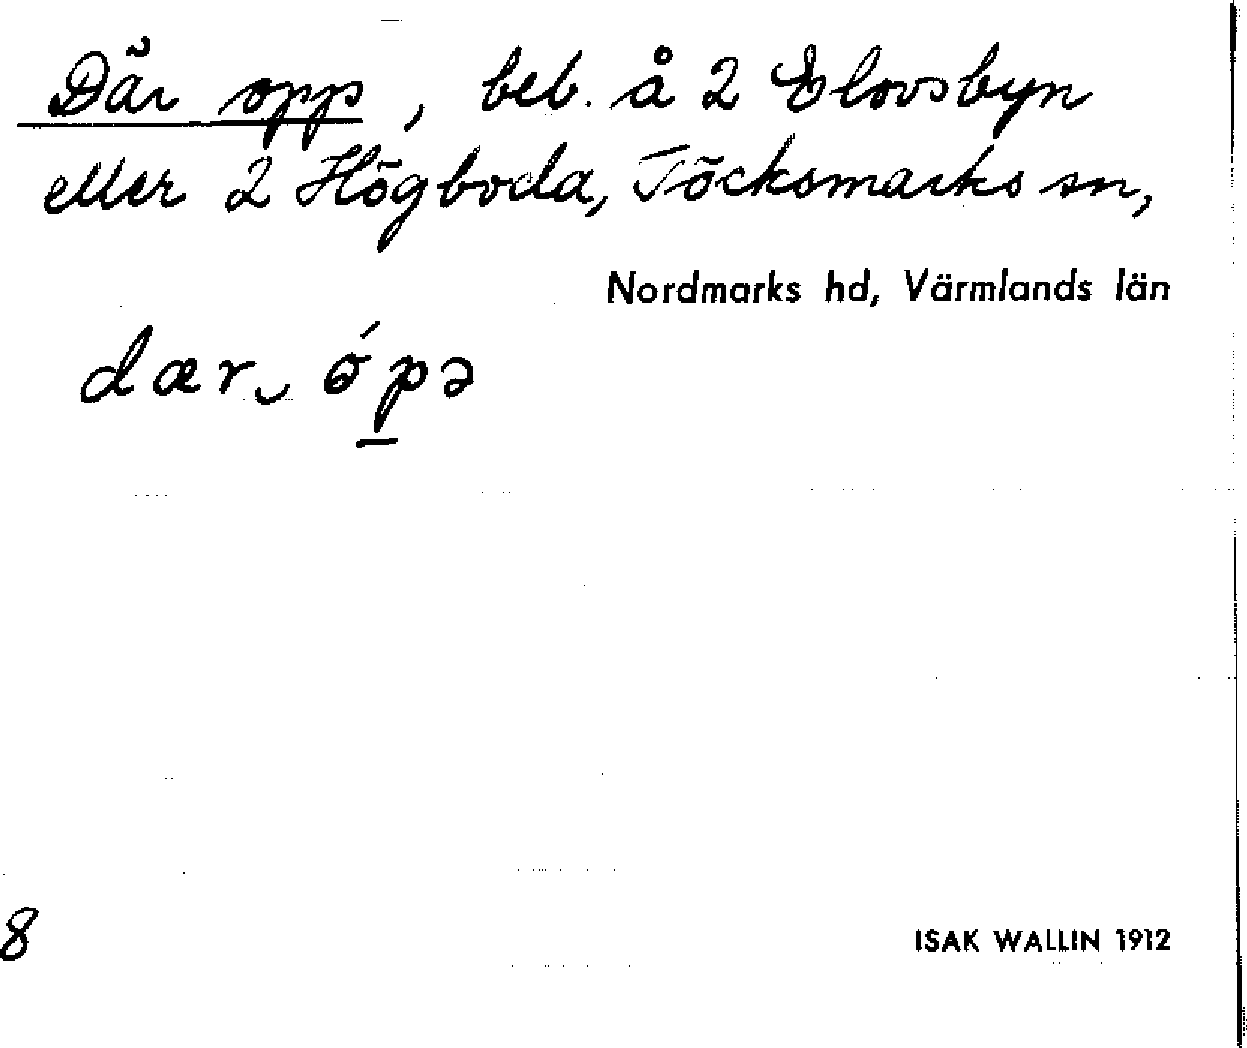 Där opp, beb. å 2 Elovsbyn
eller 2 Högboda, Töcksmarks sn,
Nordmarks hd, Värmlands län
dær ópə
8
ISAK WALLIN 1912